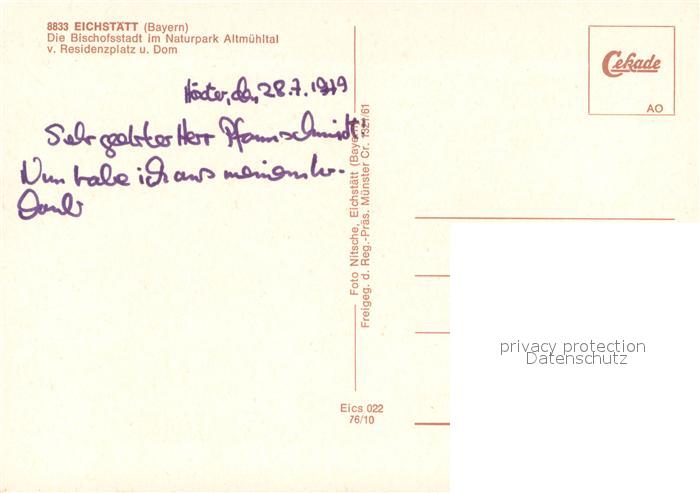 8833 EICHSTÄTT (Bayern)
Die Bischofsstadt im Naturpark Altmühltal
v. Residenzplatz u. Dom
Cekade
AO
Höxter, den 28.7.1979
Sehr geehrter Herr Pfannschmidt!
Nun habe ich aus meinem Ur-
laub
Foto Nitsche, Eichstätt (Bayern)
Freigeg. d. Reg.-Präs. Münster Cr. 1321/61
Eics 022
76/10
privacy protection
Datenschutz